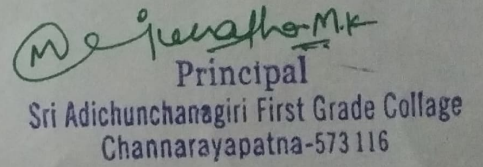 Manjunatha M.K
Principal
Sri Adichunchanagiri First Grade Collage
Channarayapatna-573 116